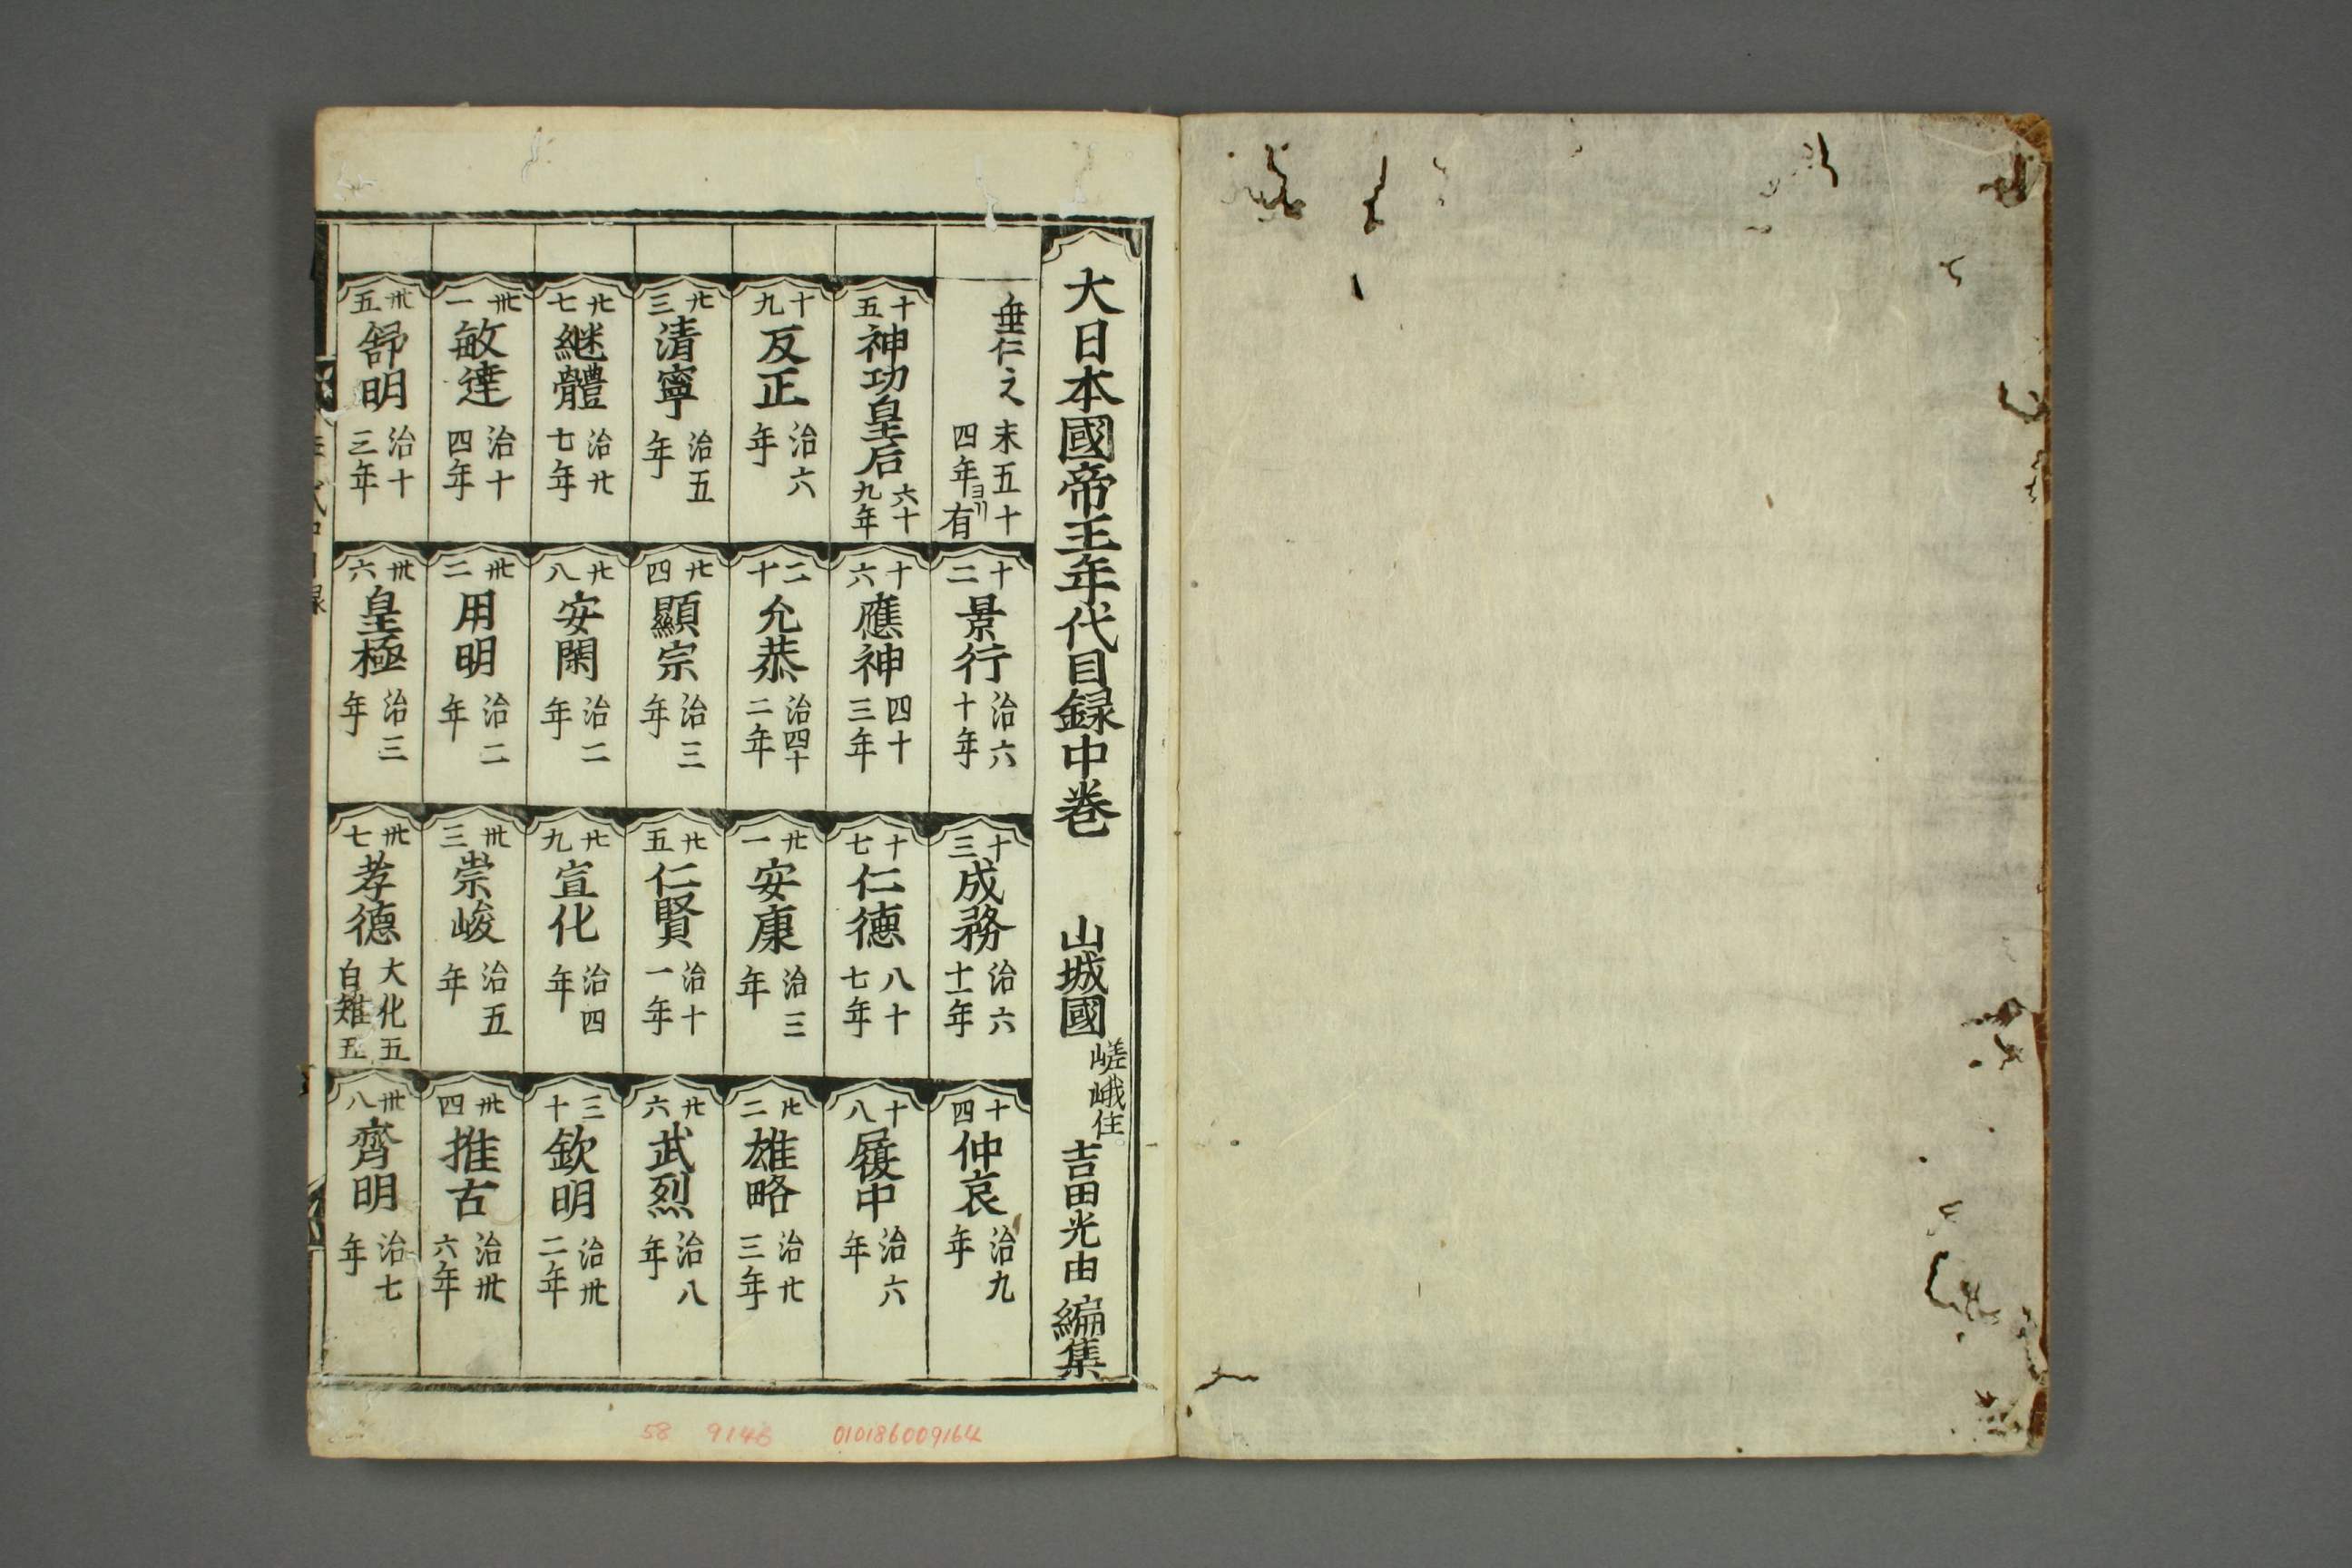 大日本國帝王年代目録中巻　山城國嵯峨住吉田光由編集
垂仁之末五十四年ヨリ有
十二景行治六十年
十三成務治六十一年
十四仲哀治九年
十五神功皇后六十九年
十六應神四十三年
十七仁德八十七年
十八履中治六年
十九反正治六年
二十允恭治四十二年
廿一安康治三年
廿二雄略治廿三年
廿三清寧治五年
廿四顯宗治三年
廿五仁賢治十一年
廿六武烈治八年
廿七継體治廿七年
廿八安閑治二年
廿九宣化治四年
三十欽明治卅二年
卅一敏達治十四年
卅二用明治二年
卅三崇峻治五年
卅四推古治卅六年
卅五舒明治十三年
卅六皇極治三年
卅七孝德大化五白雉五
卅八齊明治七年
58 9148 010186009164